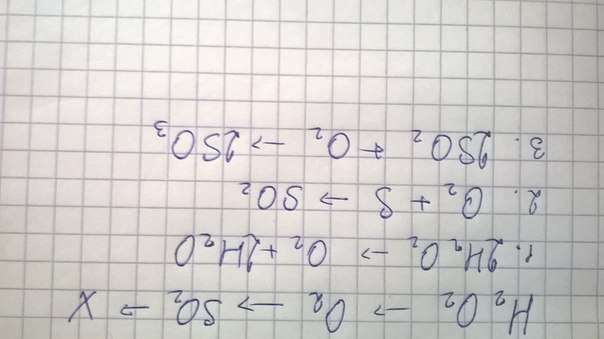 H₂O₂ → O₂ → SO₂ → X
1. 2H₂O₂ → O₂ + 2H₂O
2. O₂ + S → SO₂
3. 2SO₂ + O₂ → 2SO₃